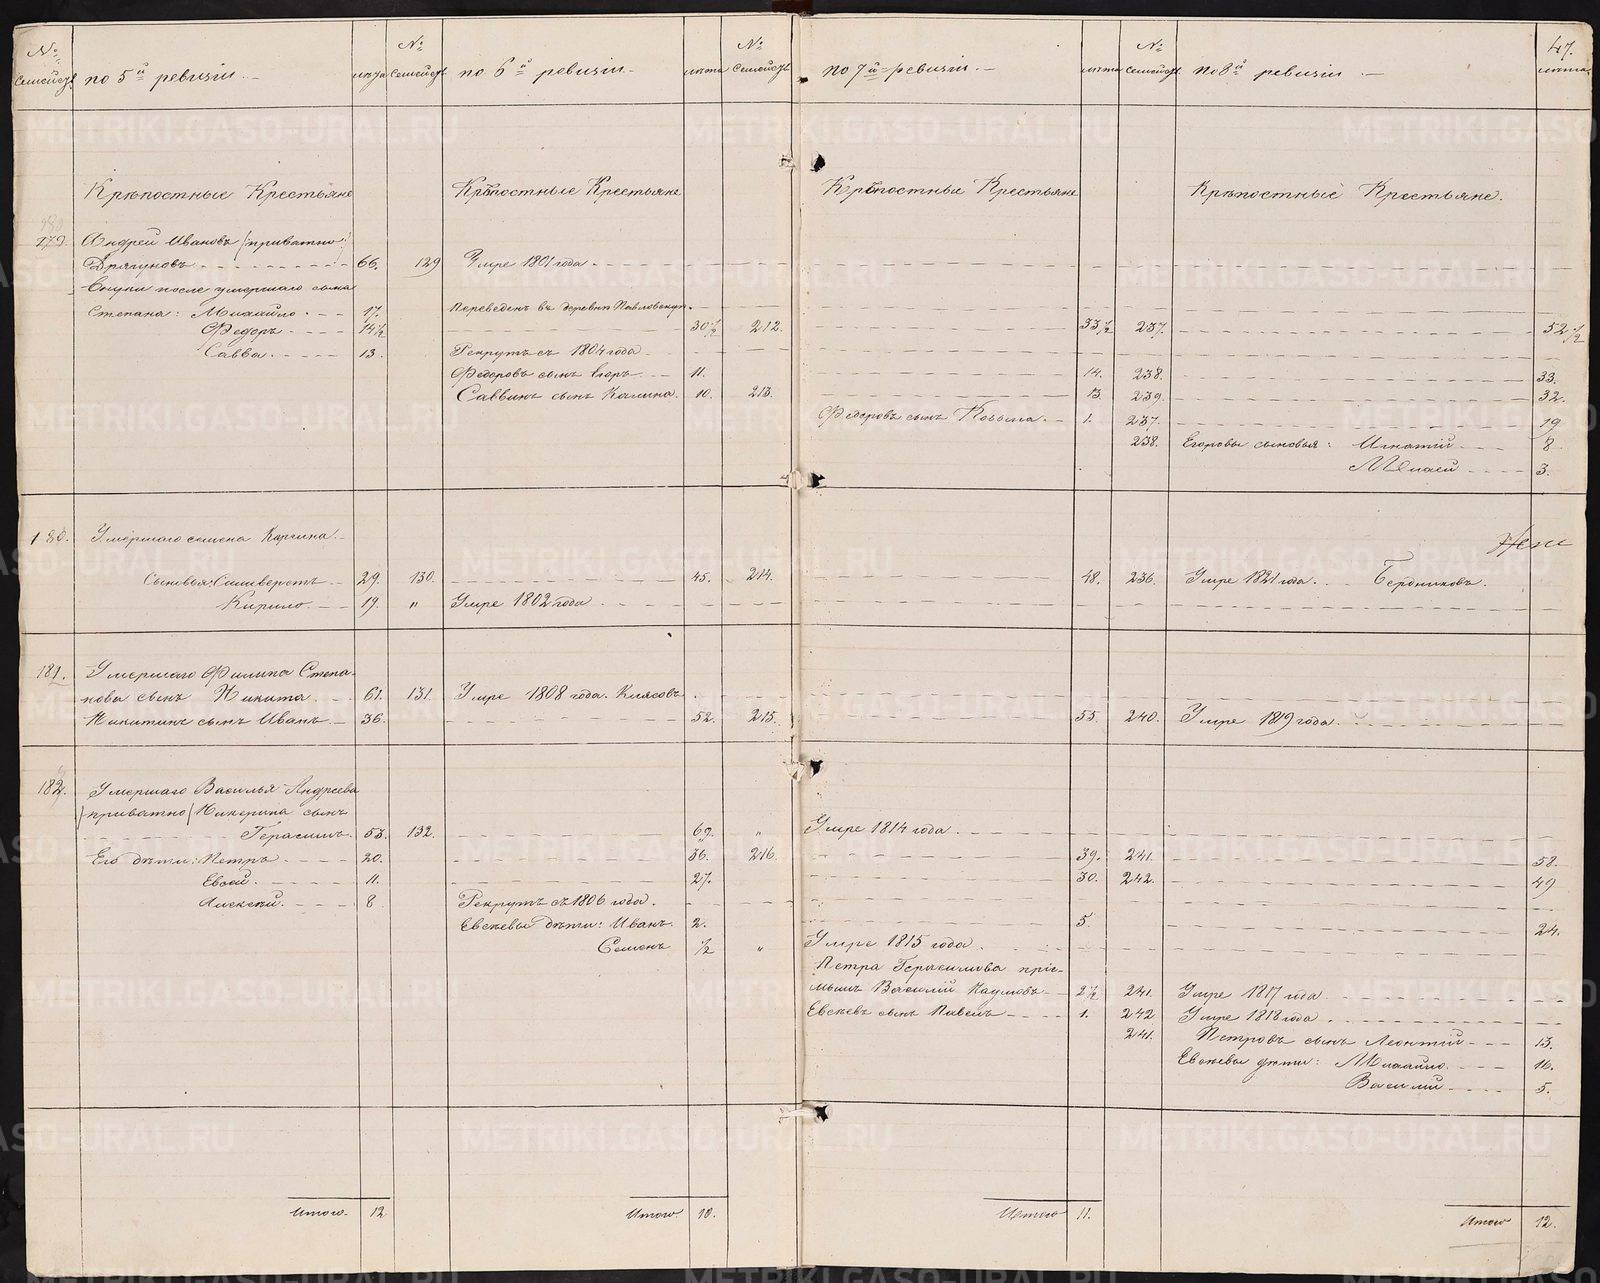 47.
№ семейст. по 5й ревизіи. — лѣта № семейст. по 6й ревизіи. — лѣта № семейст. по 7й ревизіи. — лѣта № семейст. по 8й ревизіи. — лѣта
Крѣпостные Крестьяне Крѣпостные Крестьяне Крѣпостные Крестьяне Крѣпостные Крестьяне.
179. Андрей Ивановъ /приватно/
66. 129 Умре 1801 года.
Внуки после умершаго сына
Степана: Михайло. 17. Переведенъ въ деревню Павловскую.
Федоръ 14½ 30½ 212. 33½ 237. 52½
Савва. 13. Рекрутъ съ 1804 года
Федоровъ сынъ Егоръ 11. 14. 238. 33.
Саввинъ сынъ Калина. 10. 213. 13. 239. 32.
Федоровъ сынъ Козьма. 1. 237. 19
238. Егоровы сыновья: Игнатій 8
3.
180. Умершаго семена Каргина.
Сыновья: Силиверстъ 29. 130. 45. 214. 48. 236. Умре 1821 года. Бердниковъ.
Кирило. 19. " Умре 1802 года
181. Умершаго Филипа Степа-
нова сынъ Никита 61. 131. Умре 1808 года.
Никитинъ сынъ Иванъ 36. 52. 215. 55. 240. Умре 1819 года.
182. Умершаго Василья Андреева
/приватно/ сынъ
Герасимъ. 53. 132. 69. " Умре 1814 года.
Его дѣти: Петръ 20. 36. 216. 39. 241. 58.
Евсей. 11. 27. 30. 242. 49
Алексей. 8 Рекрутъ съ 1806 года.
Евсеевы дѣти: Иванъ. 2. 5. 24.
Семенъ ½ " Умре 1815 года.
Петра Герасимова пріе-
мышъ Василій Наумовъ 2½ 241. Умре 1817 года
Евсеевъ сынъ Павелъ 1. 242 Умре 1818 года.
241. Петровъ сынъ Леонтій 13.
Евсеевы дѣти: Михайло. 16.
Василій 5.
Итого. 12 Итого. 10. Итого 11. Итого 12.
METRIKI.GASO-URAL.RU